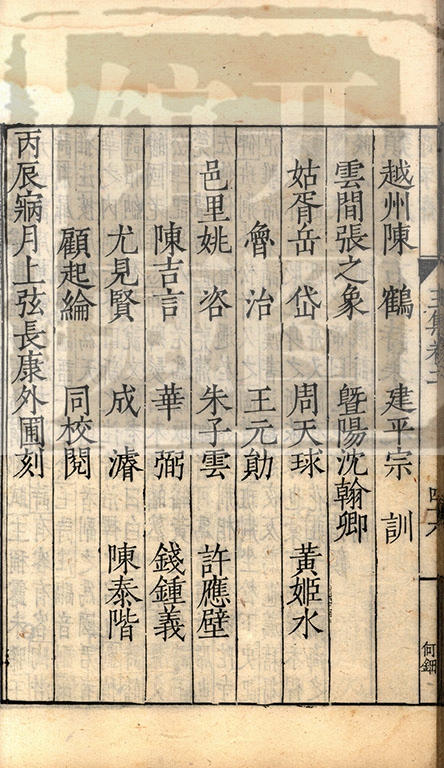 越州陳　鶴　　建平宗　訓
雲間張之象　　曁陽沈翰卿
姑胥岳　岱　　周天球　　黃姬水
魯　治　　王元勛
邑里姚　咨　　朱子雲　　許應壁
陳吉言　　華　弼　　錢鍾義
尤見賢　　成　濬　　陳泰階
顧起綸　　同校閱
丙辰寎月上弦長康外圃刻
何鈿